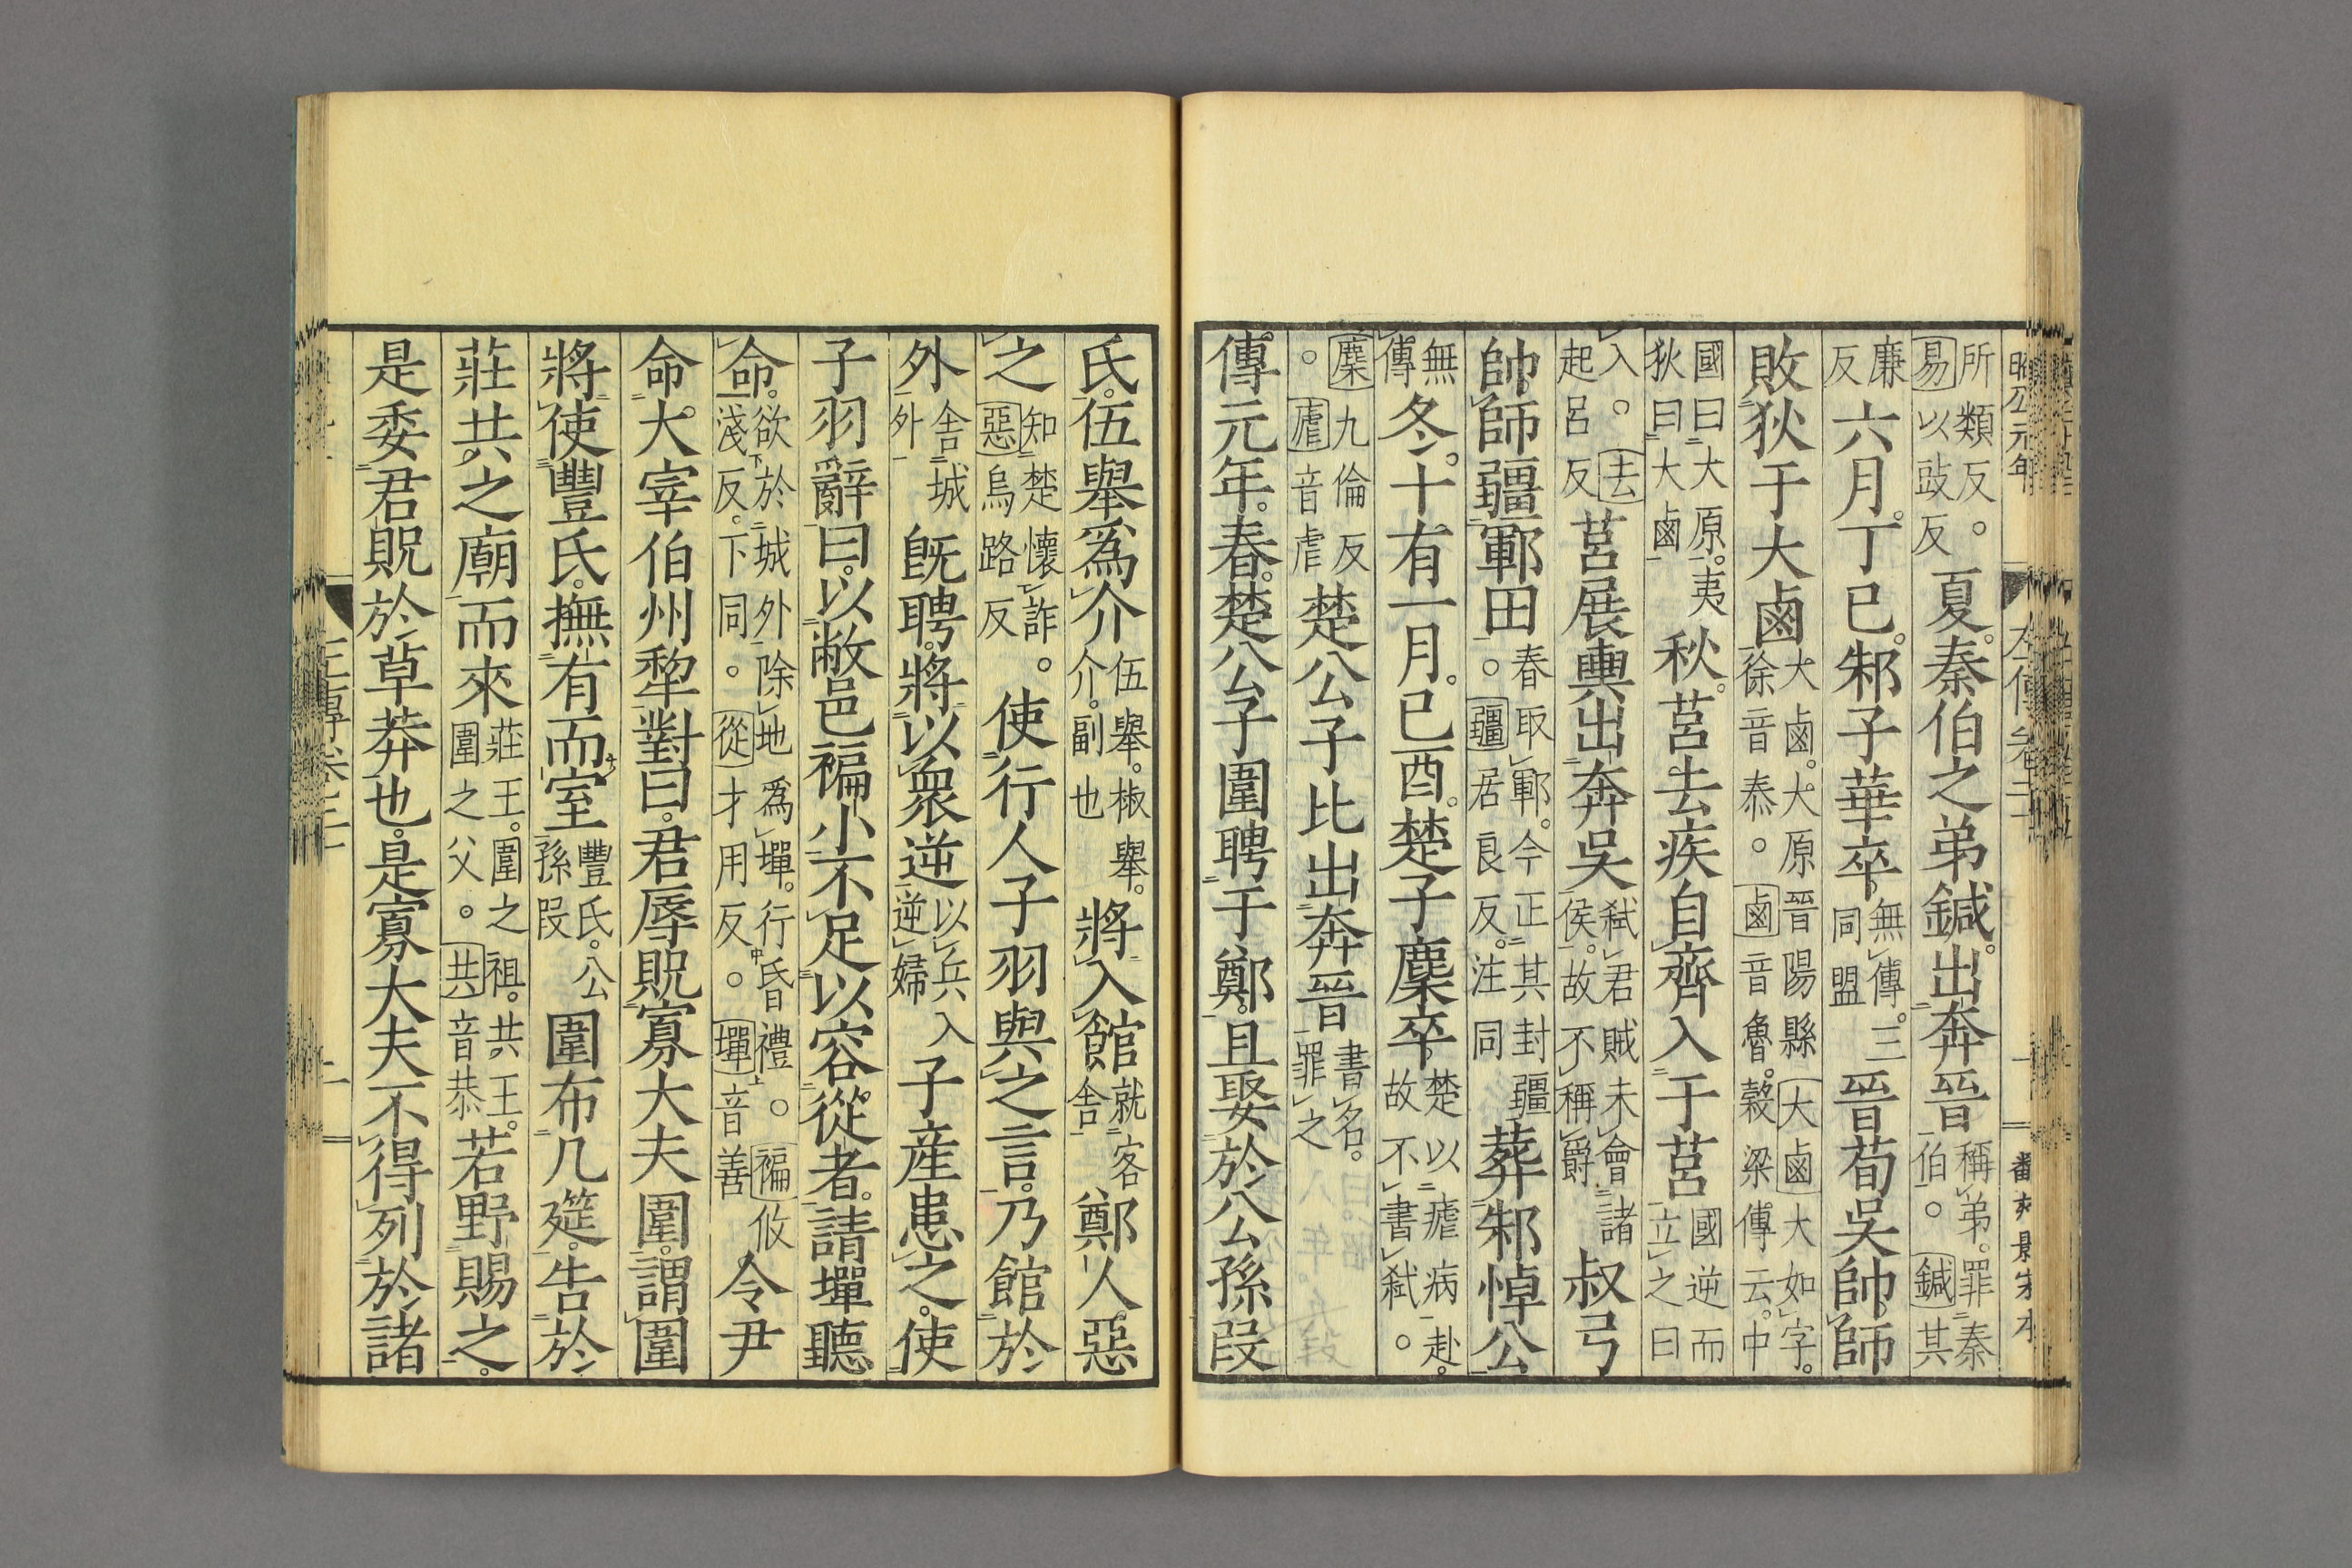 昭公元年
所類反。易以豉反夏。秦伯之弟鍼。出奔晉稱弟。罪秦伯。鍼其
廉反六月。丁巳。邾子華卒。無傳。三同盟晉荀吳帥師
敗狄于大鹵大鹵。大原晉陽縣大鹵大如字。徐音泰。鹵音魯。穀梁傳云。中
國曰大原。夷狄曰大鹵秋。莒去疾自齊入于莒國逆而立之曰
入。去起呂反莒展輿出奔吳弒君賊未會諸侯。故不稱爵叔弓
帥師疆鄆田春取鄆。今正其封疆。疆居良反。注同葬邾悼公
無傳冬。十有一月。己酉。楚子麇卒楚以瘧病赴。故不書弒。
麇九倫反。瘧音虐楚公子比出奔晉書名。罪之
傳元年。春。楚公子圍聘于鄭。且娶於公孫段
氏。伍舉爲介伍舉。椒舉。介。副也將入館就客舍鄭人惡
之知楚懷詐。惡烏路反使行人子羽與之言。乃館於
外舍城外既聘。將以衆逆以兵入逆婦子產患之。使
子羽辭曰。以敝邑褊小。不足以容從者。請墠聽
命。欲於城外除地爲墠。行昏禮。褊攸淺反。下同。從才用反。墠音善令尹
命。大宰伯州犂對曰。君辱貺寡大夫圍。謂圍
將使豐氏。撫有而室豐氏。公孫段圍布几筵。告於
莊共之廟而來莊王。圍之祖。共王。圍之父。共音恭若野賜之。
是委君貺於草莽也。是寡大夫不得列於諸